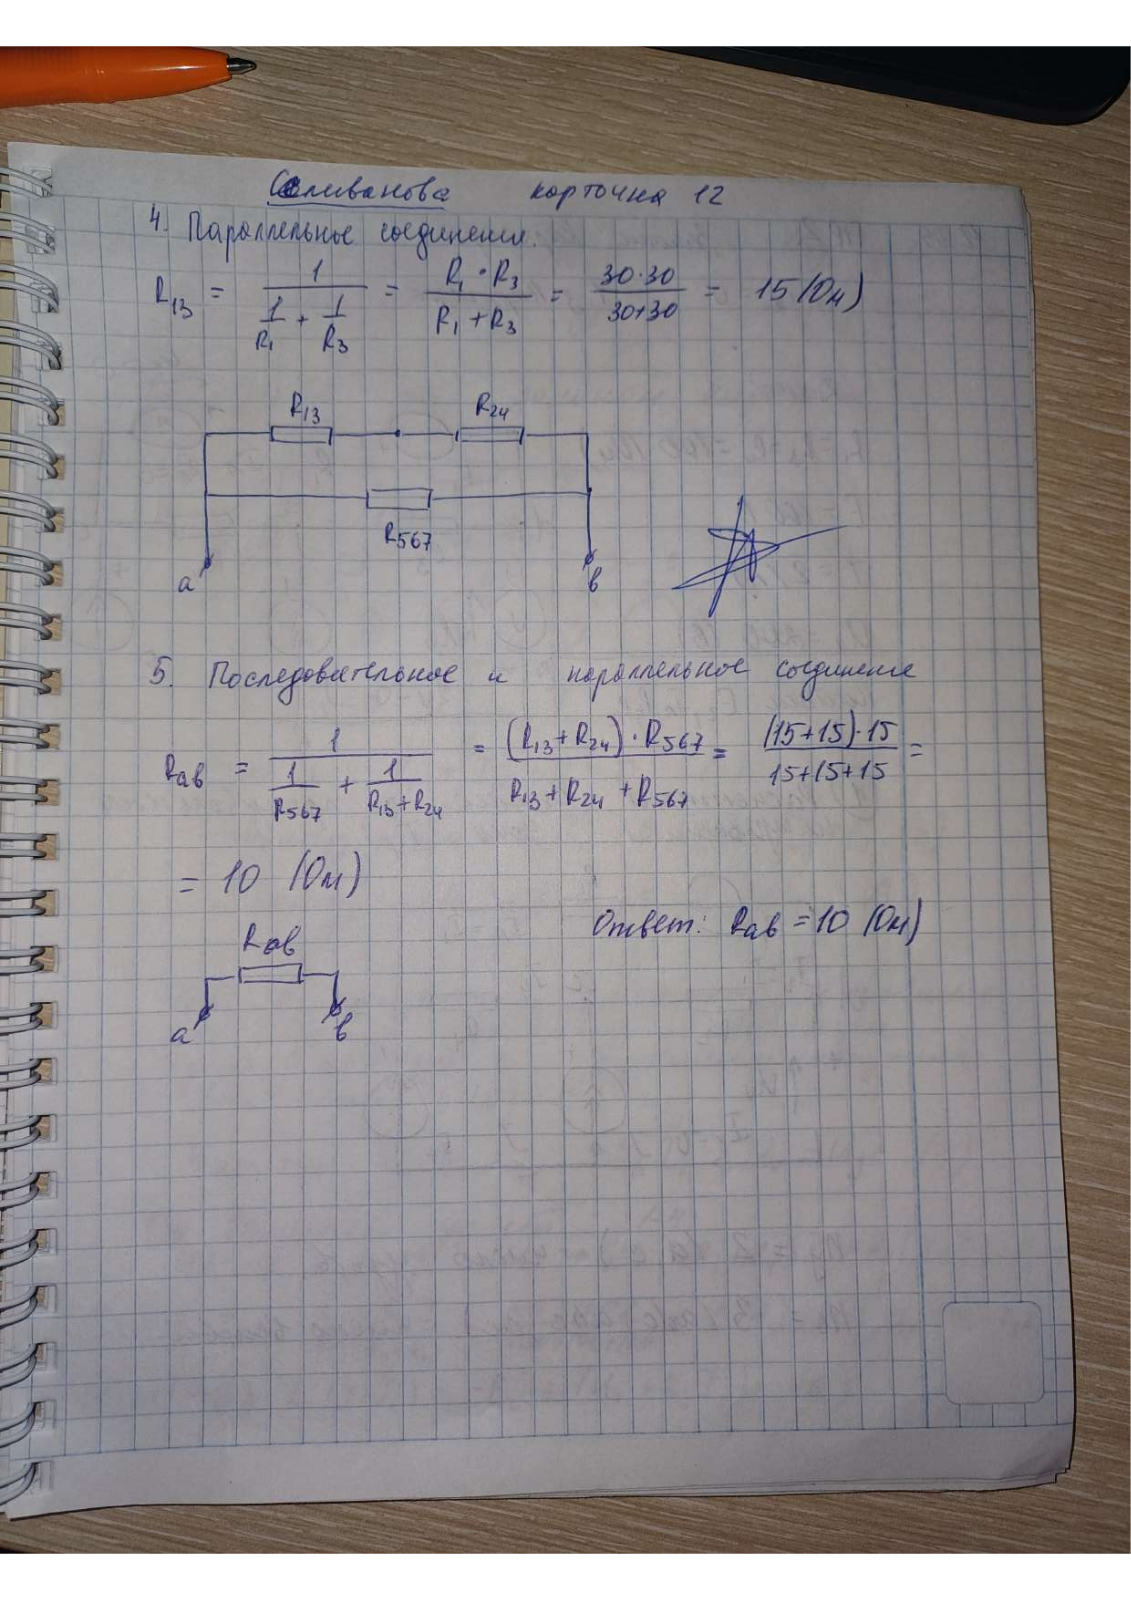 Селиванова карточка 12
4. Параллельное соединение.
R13 = 1 / (1/R1 + 1/R3) = R1 · R3 / (R1 + R3) = 30·30 / (30+30) = 15 (Ом)
R13 R24
R567
a в
5. Последовательное и параллельное соединение
Rав = 1 / (1/R567 + 1/(R13+R24)) = (R13+R24) · R567 / (R13+R24+R567) = (15+15)·15 / (15+15+15) =
= 10 (Ом)
Ответ: Rав = 10 (Ом)
Rав
a в